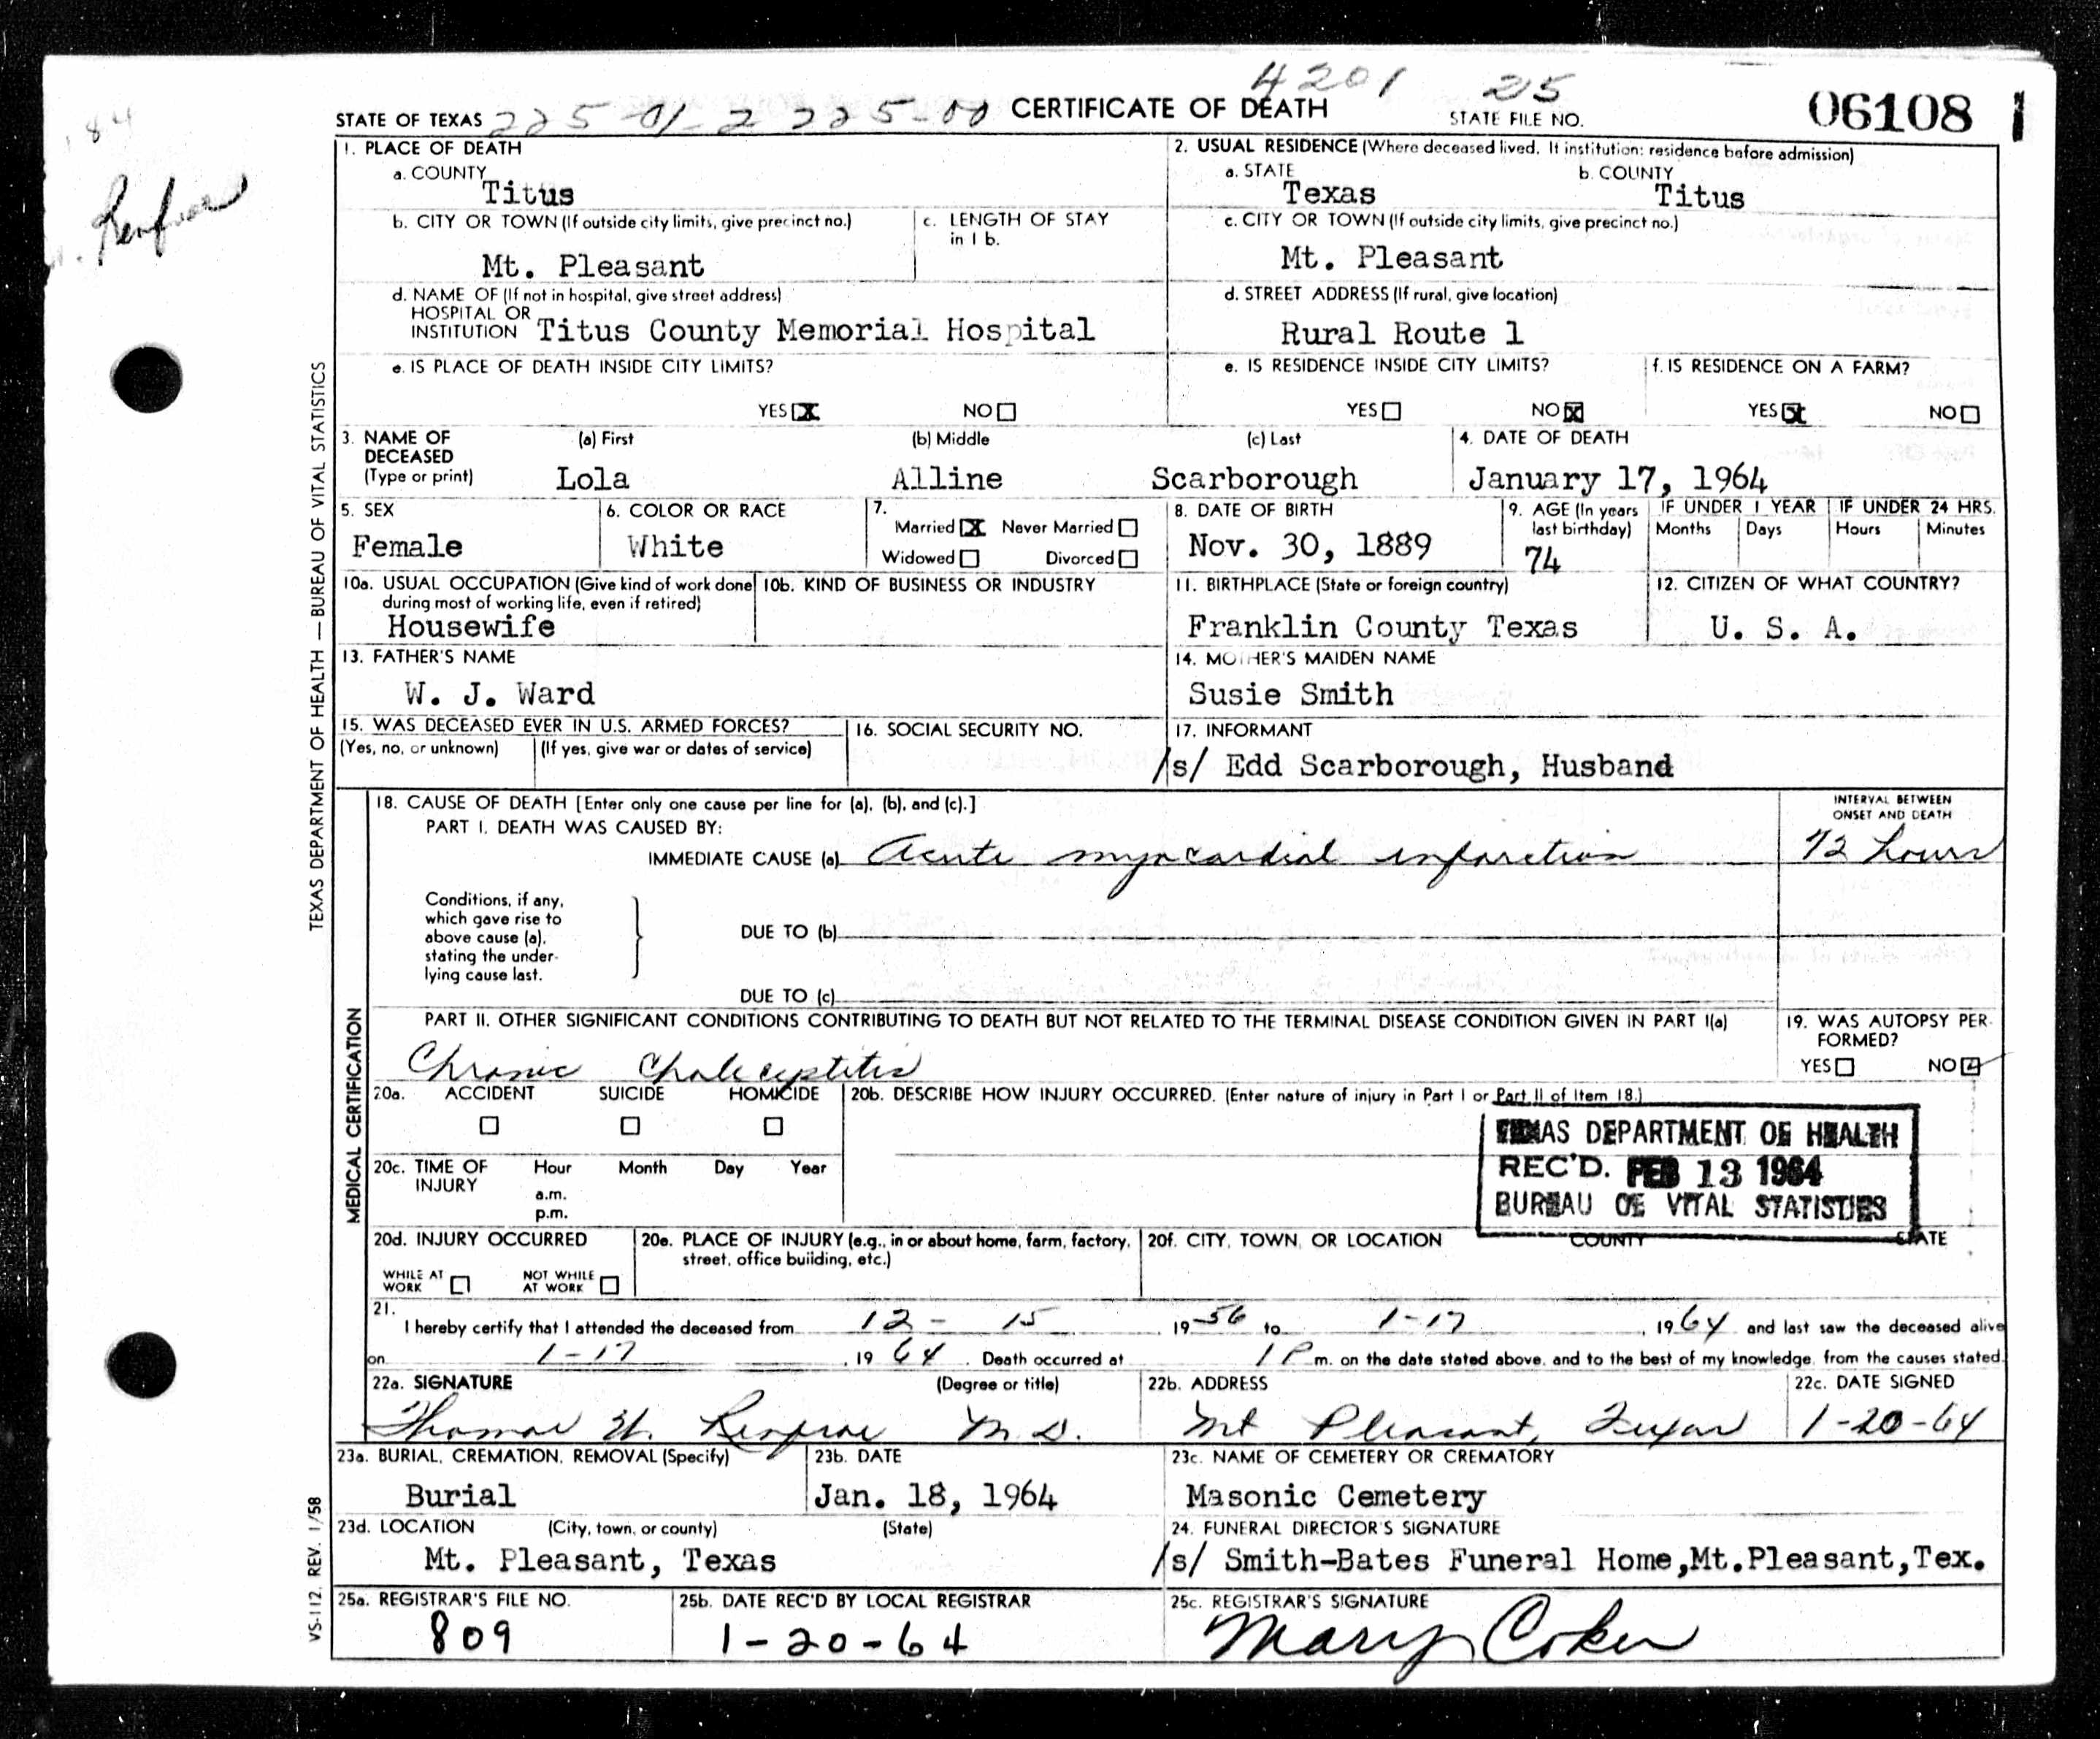 4201 25
STATE OF TEXAS 225-01-2 225-00 CERTIFICATE OF DEATH STATE FILE NO. 06108 1
84
Renfroe
TEXAS DEPARTMENT OF HEALTH — BUREAU OF VITAL STATISTICS
1. PLACE OF DEATH
a. COUNTY
Titus
2. USUAL RESIDENCE (Where deceased lived. If institution: residence before admission)
a. STATE b. COUNTY
Texas Titus
b. CITY OR TOWN (If outside city limits, give precinct no.)
Mt. Pleasant
c. LENGTH OF STAY
in 1 b.
c. CITY OR TOWN (If outside city limits, give precinct no.)
Mt. Pleasant
d. NAME OF (If not in hospital, give street address)
HOSPITAL OR
INSTITUTION Titus County Memorial Hospital
d. STREET ADDRESS (If rural, give location)
Rural Route 1
e. IS PLACE OF DEATH INSIDE CITY LIMITS?
YES X NO
e. IS RESIDENCE INSIDE CITY LIMITS?
YES NO X
f. IS RESIDENCE ON A FARM?
YES X NO
3. NAME OF (a) First (b) Middle (c) Last
DECEASED
(Type or print) Lola Alline Scarborough
4. DATE OF DEATH
January 17, 1964
5. SEX
Female
6. COLOR OR RACE
White
7.
Married X Never Married
Widowed Divorced
8. DATE OF BIRTH
Nov. 30, 1889
9. AGE (In years
last birthday)
74
IF UNDER 1 YEAR
Months Days
IF UNDER 24 HRS.
Hours Minutes
10a. USUAL OCCUPATION (Give kind of work done
during most of working life, even if retired)
Housewife
10b. KIND OF BUSINESS OR INDUSTRY
11. BIRTHPLACE (State or foreign country)
Franklin County Texas
12. CITIZEN OF WHAT COUNTRY?
U. S. A.
13. FATHER'S NAME
W. J. Ward
14. MOTHER'S MAIDEN NAME
Susie Smith
15. WAS DECEASED EVER IN U.S. ARMED FORCES?
(Yes, no, or unknown) (If yes, give war or dates of service)
16. SOCIAL SECURITY NO.
17. INFORMANT
/s/ Edd Scarborough, Husband
MEDICAL CERTIFICATION
18. CAUSE OF DEATH [Enter only one cause per line for (a), (b), and (c).]
PART I. DEATH WAS CAUSED BY:
IMMEDIATE CAUSE (a) Acute myocardial infarction
INTERVAL BETWEEN
ONSET AND DEATH
72 hours
Conditions, if any,
which gave rise to
above cause (a),
stating the under-
lying cause last.
DUE TO (b)
DUE TO (c)
PART II. OTHER SIGNIFICANT CONDITIONS CONTRIBUTING TO DEATH BUT NOT RELATED TO THE TERMINAL DISEASE CONDITION GIVEN IN PART I(a)
Chronic
19. WAS AUTOPSY PER-
FORMED?
YES NO
20a. ACCIDENT SUICIDE HOMICIDE
20b. DESCRIBE HOW INJURY OCCURRED. (Enter nature of injury in Part I or Part II of Item 18.)
TEXAS DEPARTMENT OF HEALTH
REC'D. FEB 13 1964
BUREAU OF VITAL STATISTICS
20c. TIME OF Hour Month Day Year
INJURY a.m.
p.m.
20d. INJURY OCCURRED
WHILE AT
WORK
NOT WHILE
AT WORK
20e. PLACE OF INJURY (e.g., in or about home, farm, factory,
street, office building, etc.)
20f. CITY, TOWN, OR LOCATION COUNTY STATE
21.
I hereby certify that I attended the deceased from 12 - 15 1956 to 1-17, 1964 and last saw the deceased alive
on 1-17, 1964. Death occurred at 1 P m. on the date stated above, and to the best of my knowledge, from the causes stated.
22a. SIGNATURE (Degree or title)
Thomas W. Renfroe M.D.
22b. ADDRESS
Mt Pleasant, Texas
22c. DATE SIGNED
1-20-64
23a. BURIAL, CREMATION, REMOVAL (Specify)
Burial
23b. DATE
Jan. 18, 1964
23c. NAME OF CEMETERY OR CREMATORY
Masonic Cemetery
23d. LOCATION (City, town, or county) (State)
Mt. Pleasant, Texas
24. FUNERAL DIRECTOR'S SIGNATURE
/s/ Smith-Bates Funeral Home,Mt.Pleasant,Tex.
25a. REGISTRAR'S FILE NO.
809
25b. DATE REC'D BY LOCAL REGISTRAR
1-20-64
25c. REGISTRAR'S SIGNATURE
Mary Coker
VS-112. REV. 1/58